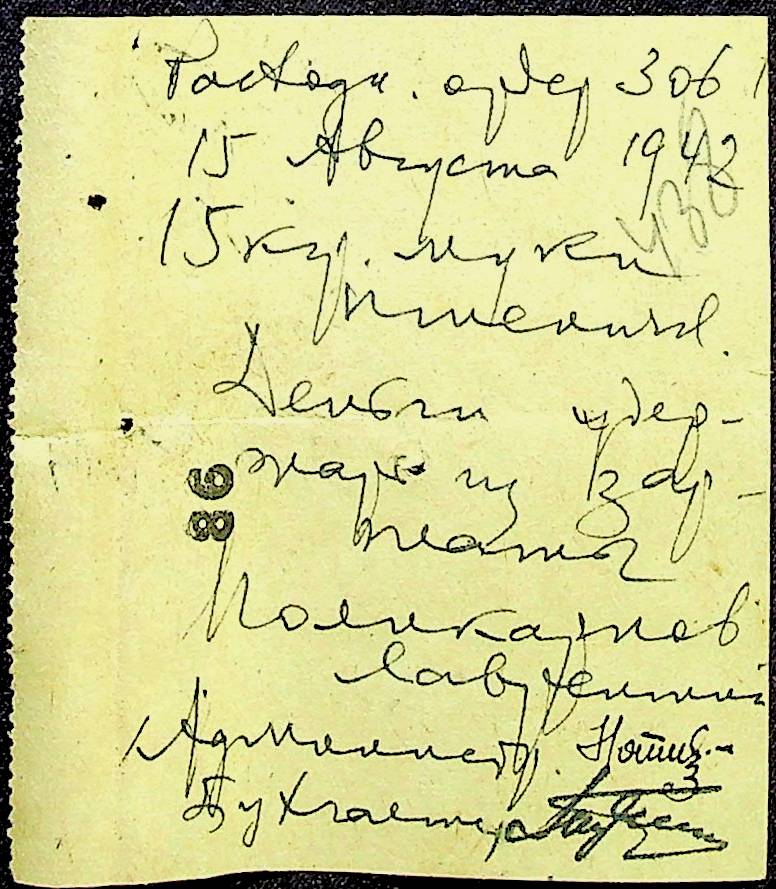 Расходн. ордер 306
15 Августа 1942
15 кгр. муки
пшеничн.
Деньги удер-
жать из зар-
платы
Поликарпов
Лаврентий
Администр.
Бухгалтер
98